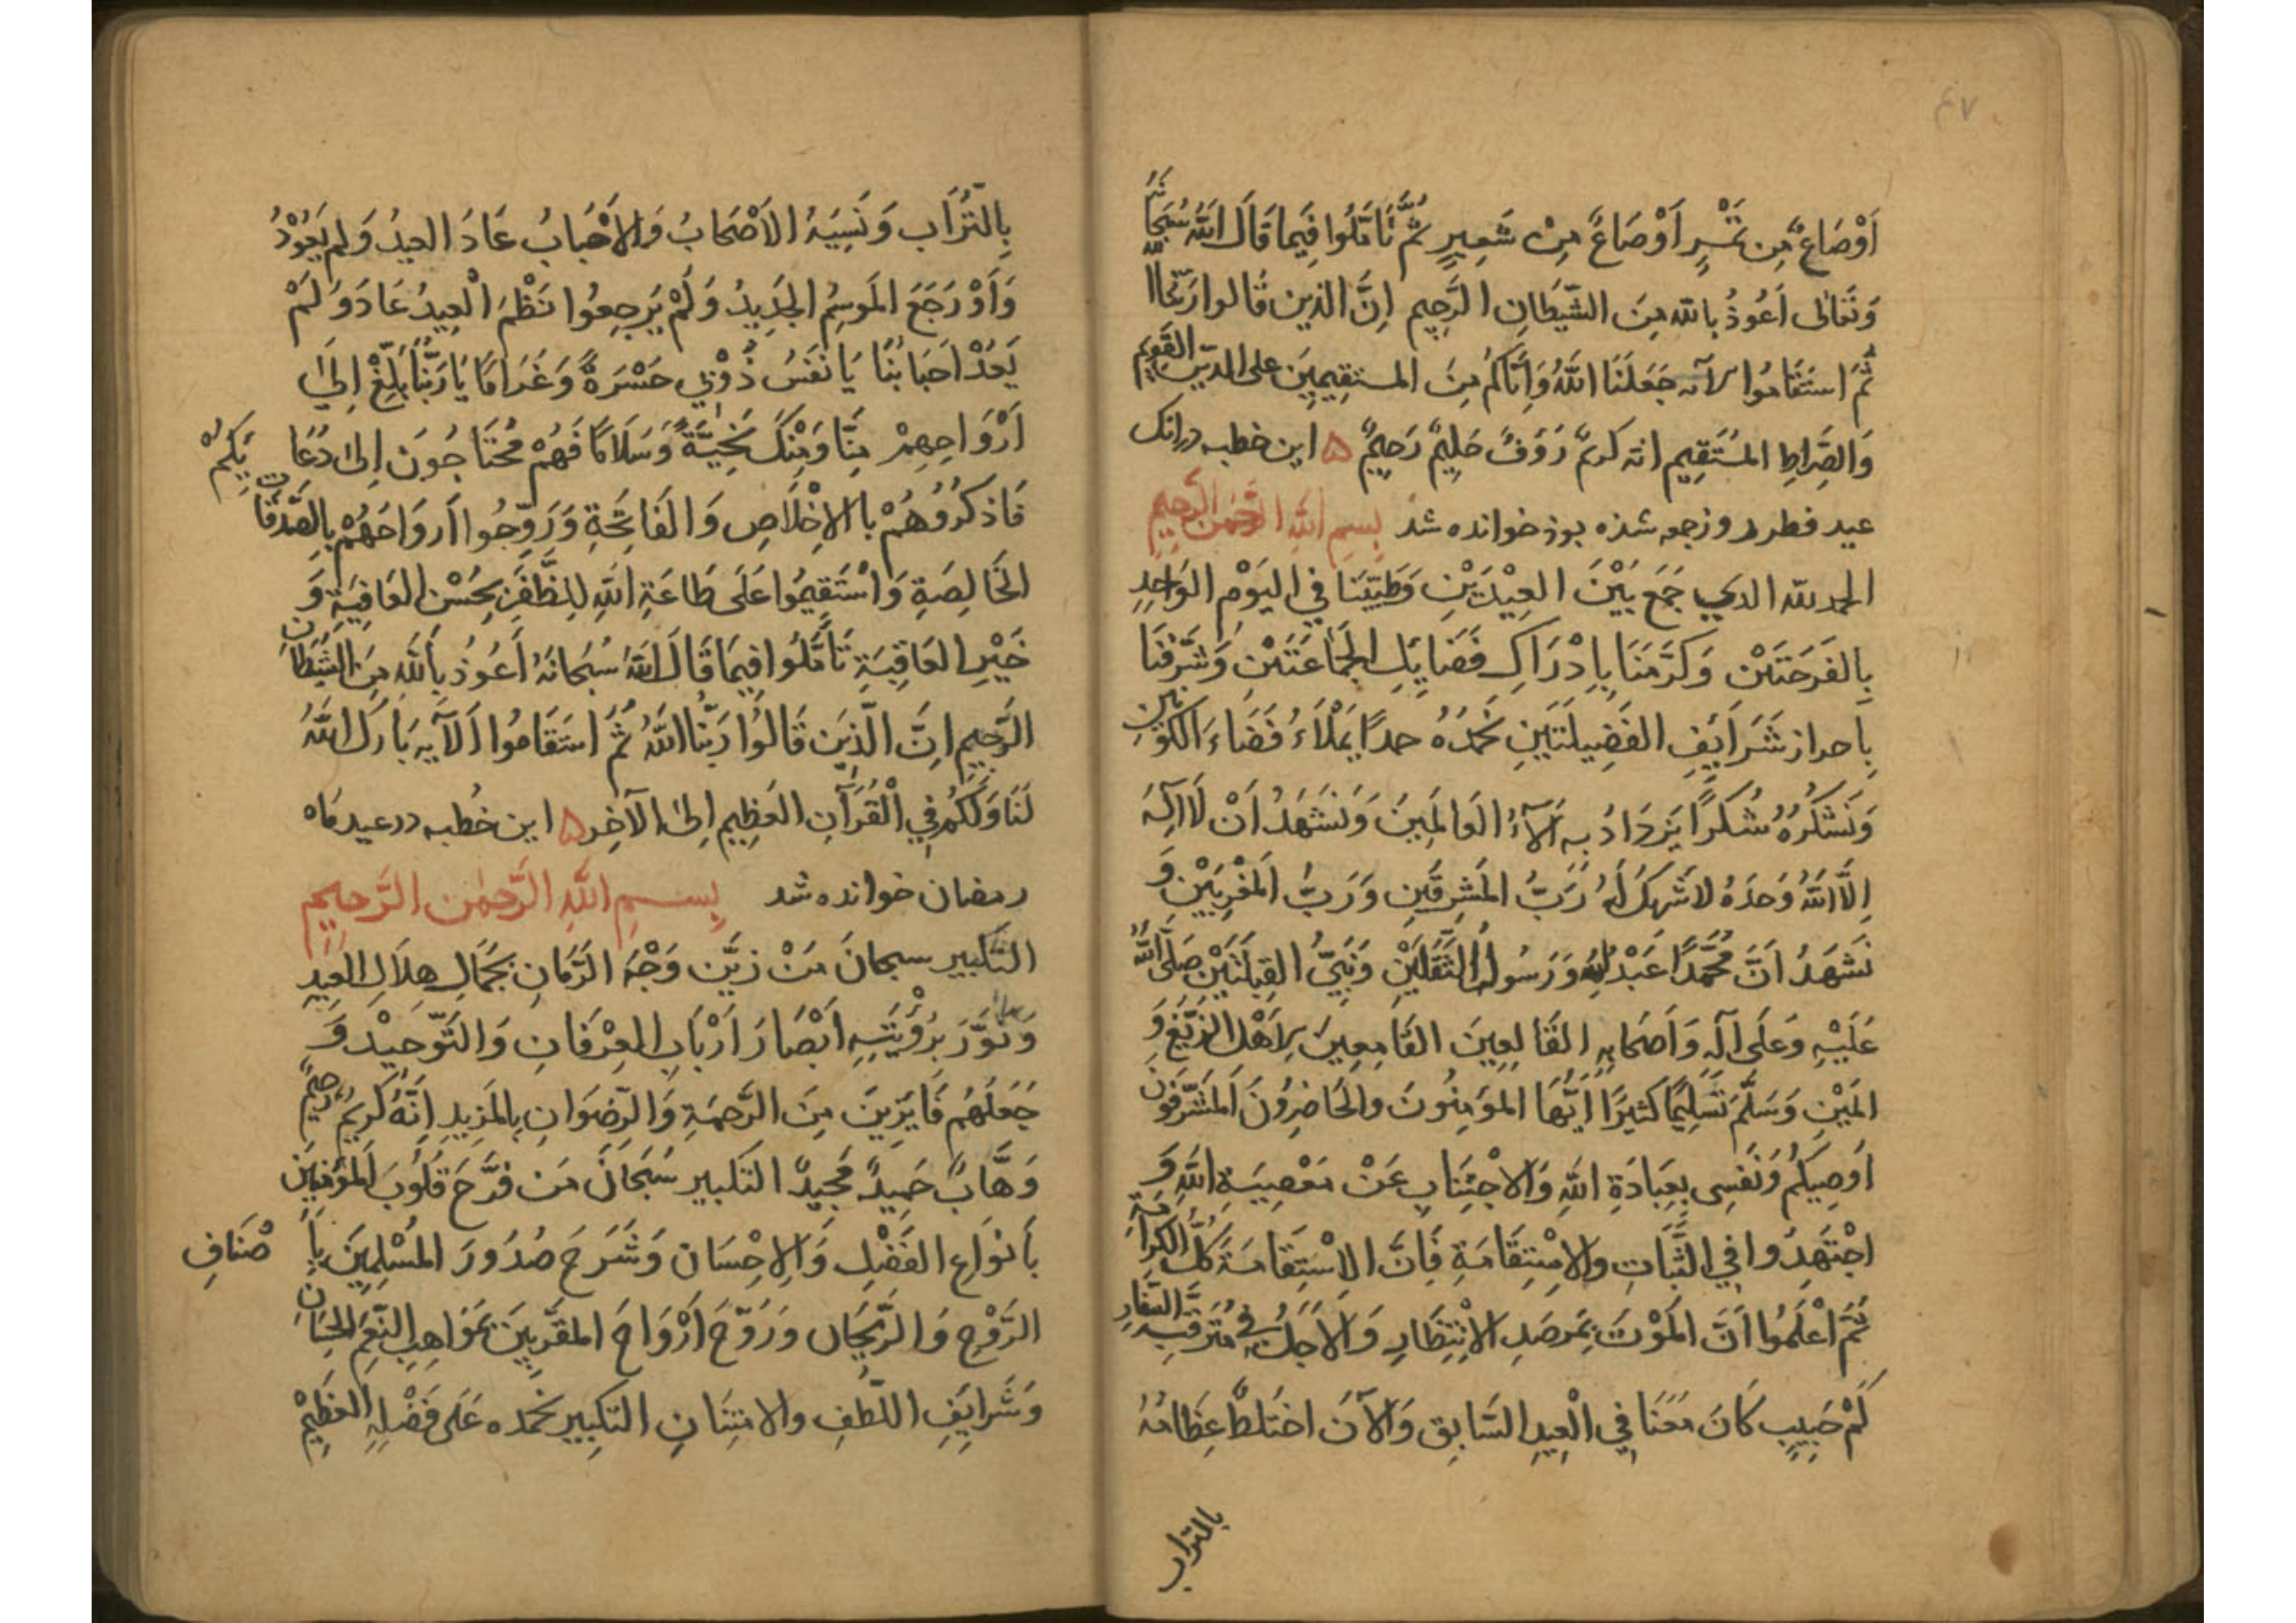 ٤٧
اَوْصَاعٌ مِن تَمْرٍ اَوْصَاعٌ مِنْ شَعِيرٍ ثُمَّ تَاَمَّلُوا فِيمَا قَالَ اللهُ سُبْحَانَهُ
وَتَعَالٰى اَعُوذُ بِاللهِ مِنَ الشَّيْطَانِ الرَّجِيمِ اِنَّ الذين قالوا رَبُّنَا الله
ثُمَّ اسْتَقَامُوا الآيه جَعَلَنَا اللهُ وَاِيَّاكُمْ مِنَ المستقِيمِينَ على الدّينِ القَوِيمِ
وَالصِّرَاطِ المُسْتَقِيمِ انه كريمٌ رَؤُفٌ حَلِيمٌ رَحِيمٌ ۵ اين خطبه درانك
عيد فطر روز جمعه شذه بوذ خوانده شد بِسمِ اللهِ الرَّحْمٰنِ الرَّحِيمِ
الحمد لله الذي جَمَعَ بَيْنَ العِيْدَيْنِ وَطَيَّبَنَا فِي اليَوْمِ الوَاحِدِ
بِالفَرَحَتَيْن وَكَرَّمَنَا بِاِدْرَاكِ فَضَايِلِ الجَمَاعَتَيْنِ وَشَرَّفَنَا
بِاحراز شَرَايِفِ الفَضِيلَتَيْنِ نَحْمَدُهُ حمدًا يَمْلَاءُ فَضَاءَ الكَوْنَيْنِ
وَنَشْكُرُهُ شُكْرًا يَزْدَادُ بِهِ آلَاءُ العَالَمِينَ وَنَشْهَدُ اَنْ لَا اِلٰهَ
اِلَّا اللهُ وَحدَهُ لاشَرِيكَ لَهُ رَبُّ المَشرِقَينِ وَرَبُّ المَغْرِبَيْنِ وَ
نَشهَدُ اَنَّ مُحَمَّدًا عَبْدُهُ وَرَسُولُهُ الثَّقَلَيْنِ وَنَبِيُّ القِبلَتَيْنِ صَلَّى اللهُ
عَلَيْهِ وَعَلَى آلِهِ وَاَصحَابِهِ القَالِعِينَ القَامِعِينَ لِاَهْلِ الزَّيْغِ وَ
المَيْنِ وَسَلَّمَ تَسْلِيمًا كثيرًا اَيُّهَا المُؤمِنُونَ والحَاضِرُونَ المُشَرَّفُونَ
اُوصِيكُمْ وَنَفسِى بِعِبَادَةِ اللهِ وَالاجْتِنَابِ عَنْ مَعْصِيَةِ اللهِ وَ
اجْتَهِدُوا فِي الثَّبَاتِ والاسْتِقَامَةِ فَاِنَّ الاِسْتِقَامَةَ كُلُّ الكَرَامَةِ
ثُمَّ اعْلَمُوا اَنَّ المَوْتَ بِمَرصَدِ الاِنْتِظَارِ وَالاَجَلُ فِي
كَمْ حَبِيبٍ كَانَ مَعَنَا فِي الْعِيدِ السَّابِقِ وَالآنَ اختَلَطَ عِظَامُهُ
بالتراب
بِالتُّرَابِ وَنَسِيَهُ الاَصْحَابُ وَالاَحْبَابُ عَادَ العِيدُ وَلم يَعُوْدُ
وَاَوْ رَجَعَ المَوسِمُ الجَدِيدُ وَلَمْ يَرجِعُوا نَظْمَ الْعِيدُ عَادَ وَلَمْ
يَعُدْ اَحبَابُنَا يَا نَفْسُ ذُوْبِي حَسْرَةً وَغَرَامًا يَا رَبَّنَا بَلِّغْ اِلىٰ
اَرْوَاحِهِمْ مِنَّا وَمِنْكَ تَحِيَّةً وَسَلَامًا فَهُمْ مُحْتَاجُونَ اِلىٰ دُعَايَكُمْ
فَاذكُرُوْهُمْ بالاِخْلَاصِ وَالفَاتِحَةِ وَرَوِّحُوا اَروَاحَهُمْ بِالصَّدَقَاتِ
الخَالِصَةِ وَاسْتَقِيمُوا عَلَى طَاعَةِ اللهِ لِلظَّفَرِ بِحُسْنِ العَافِيَةِ وَ
خَيْرِ العَاقِبَةِ تَأمَّلُوا فِيمَا قَالَ اللهُ سُبحَانَهُ أَعُوذُ بِاَللهِ مِنَ الشَّيطَانِ
الرَّجِيمِ اِنَّ الَّذِينَ قَالُوا رَبُّنَا اللهُ ثُمَّ اسْتَقَامُوا اَلآيه بَارَكَ اللهُ
لَنَا وَلَكُمْ فِي الْقُرآنِ العَظِيمِ اِلىٰ الآخِرِ ۵ اين خُطبه در عيد مَاه
رمضان خوانده شد بِسمِ اللهِ الرَّحْمٰنِ الرَّحِيمِ
التَّكْبِير سبحانَ مَنْ زيَّن وَجْهَ الزَّمَانِ بِجَمَالِ هِلَالِ العِيدِ
وَنَوَّرَ بِرُؤْيَتِهِ اَبْصَارَ اَرْبَابِ العِرْفَانِ وَالتَّوْحِيْدِ وَ
جَعَلَهُم فَايِزِينَ مِنَ الرَّحمَةِ وَالرِّضوَانِ بِالمَزِيدِ اِنَّهُ كَرِيمٌ رَحِيمٌ
وَهَّابٌ حَمِيدٌ مَجِيدٌ التكبير سُبْحَانَ مَن فَرَّحَ قُلُوبَ المُؤمِنِينَ
بِأَنوَاعِ الفَضْلِ وَالاِحْسَان وَشَرَحَ صُدُورَ المُسْلِمِينَ بِاَصْنَافِ
الرَّوْحِ وَالرَّيحَان وَرَوَّحَ اَرْوَاحَ المُقَرَّبِينَ بِمَوَاهِبِ النِّعَمِ الحِسَانِ
وَشَرَايِفِ اللُّطفِ والامتِنَانِ التكبير نَحمَده عَلَى فَضْلِهِ العَظِيْمِ